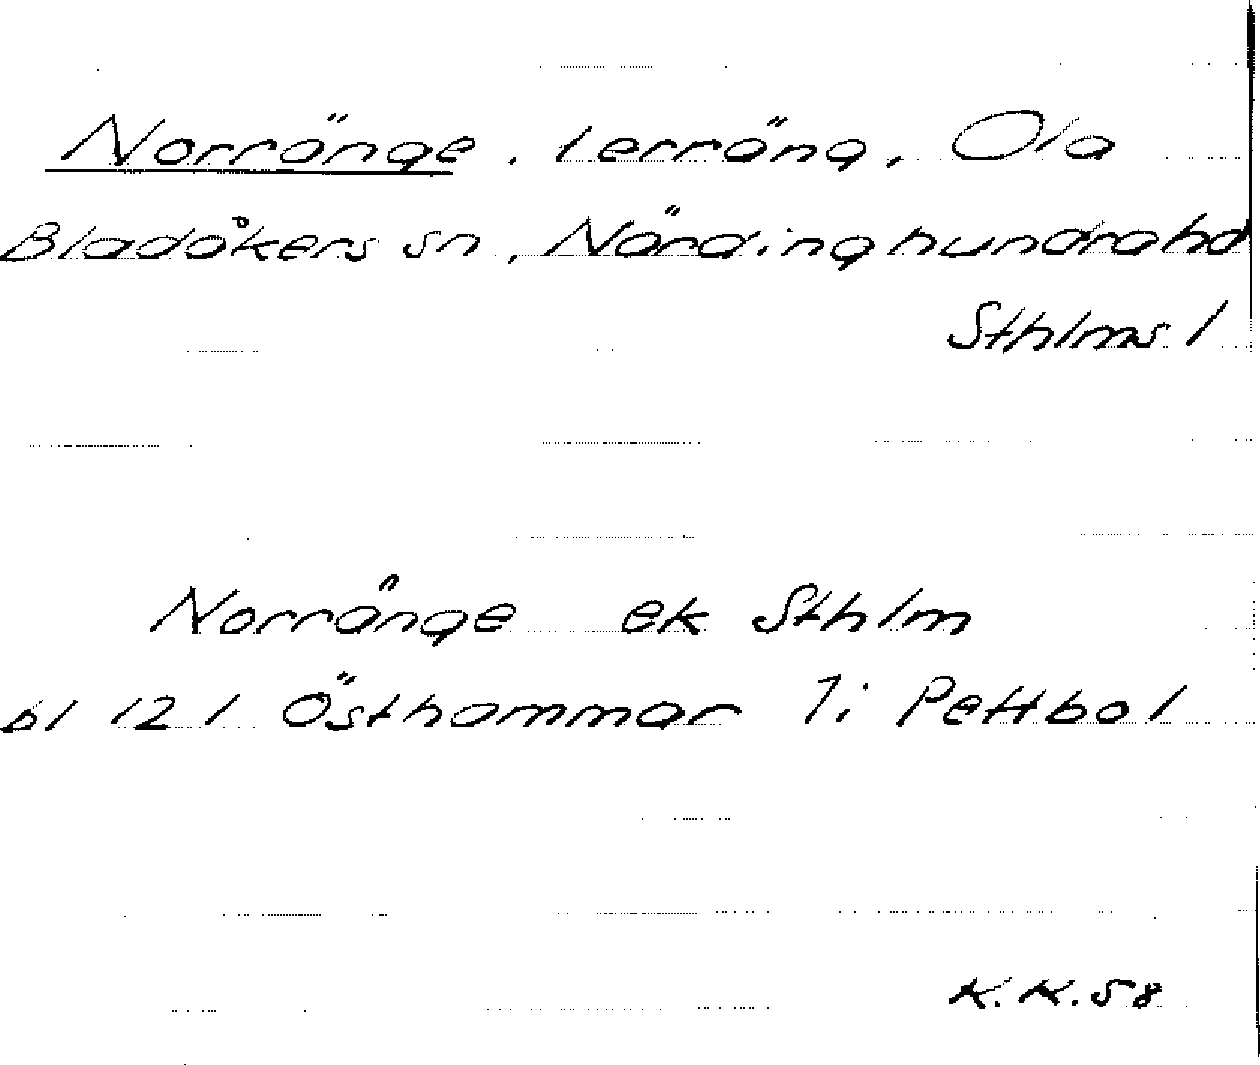 Norränge, terräng, Ola
Bladåkers sn, Närdinghundra hd
Sthlms l
Norränge ek Sthlm
bl 121 Östhammar 7i Pettbol
K.K.58